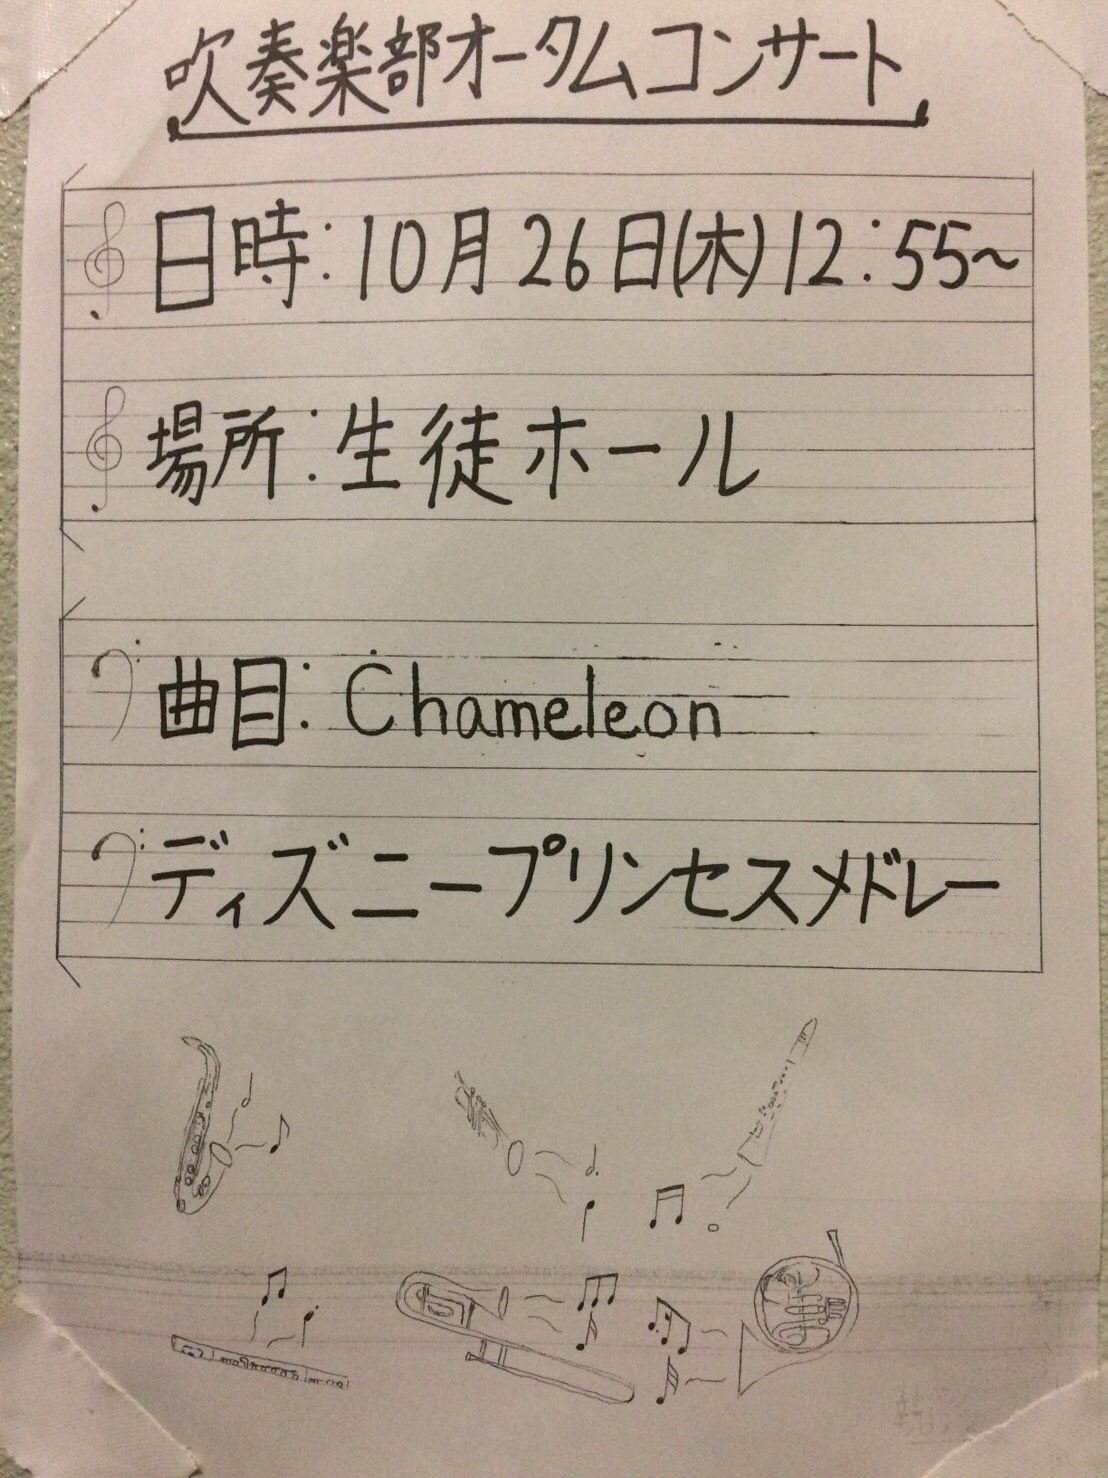 吹奏楽部オータムコンサート
日時:10月26日(木)12:55~
場所:生徒ホール
曲目:Chameleon
ディズニープリンセスメドレー